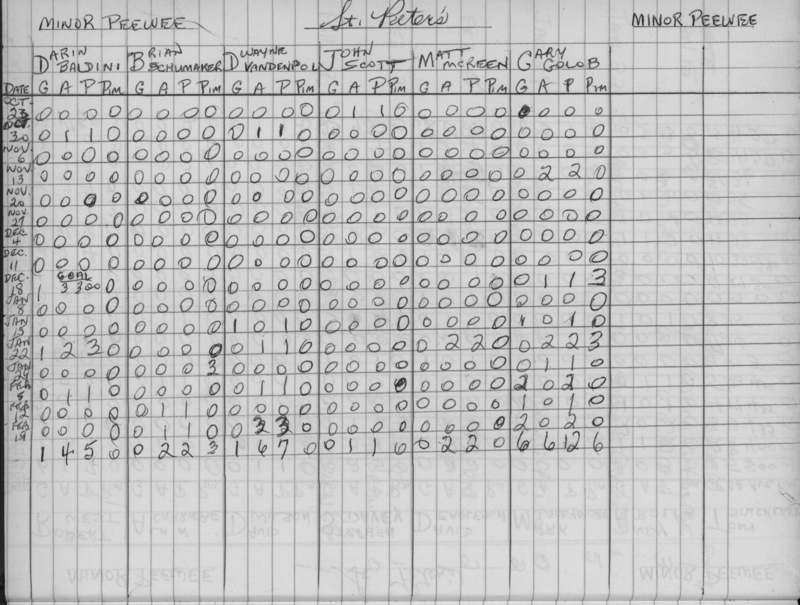 MINOR PEEWEE St. Peter's MINOR PEEWEE
DARIN BRIAN DWAYNE JOHN MATT GARY
BALDINI SCHUMAKER VANDENPOL SCOTT MCREEN GOLOB
DATE G A P Pim G A P Pim G A P Pim G A P Pim G A P Pim G A P Pim
OCT. 23 0 0 0 0 0 0 0 0 0 0 0 0 0 1 1 0 0 0 0 0 0 0 0 0
OCT. 30 0 1 1 0 0 0 0 0 0 1 1 0 0 0 0 0 0 0 0 0 0 0 0 0
NOV. 6 0 0 0 0 0 0 0 0 0 0 0 0 0 0 0 0 0 0 0 0 0 0 0 0
NOV. 13 0 0 0 0 0 0 0 0 0 0 0 0 0 0 0 0 0 0 0 0 0 2 2 0
NOV. 20 0 0 0 0 0 0 0 0 0 0 0 0 0 0 0 0 0 0 0 0 0 0 0 0
NOV. 27 0 0 0 0 0 0 0 0 0 0 0 0 0 0 0 0 0 0 0 0 0 0 0 0
DEC. 4 0 0 0 0 0 0 0 0 0 0 0 0 0 0 0 0 0 0 0 0 0 0 0 0
DEC. 11 0 0 0 0 0 0 0 0 0 0 0 0 0 0 0 0 0 0 0 0 0 0 0 0
GOAL
DEC. 18 1 3 3 0 0 0 0 0 0 0 0 0 0 0 0 0 0 0 0 0 0 0 1 1 3
JAN 8 0 0 0 0 0 0 0 0 0 0 0 0 0 0 0 0 0 0 0 0 0 0 0 0
JAN 15 0 0 0 0 0 0 0 0 1 0 1 0 0 0 0 0 0 0 0 0 1 0 1 0
JAN 22 1 2 3 0 0 0 0 0 0 1 1 0 0 0 0 0 0 2 2 0 0 2 2 3
JAN 29 0 0 0 0 0 0 0 3 0 0 0 0 0 0 0 0 0 0 0 0 0 1 1 0
FEB 5 0 1 1 0 0 0 0 0 0 1 1 0 0 0 0 0 0 0 0 0 2 0 2 0
FEB 12 0 0 0 0 0 1 1 0 0 0 0 0 0 0 0 0 0 0 0 0 1 0 1 0
FEB 19 0 0 0 0 0 1 1 0 0 3 3 0 0 0 0 0 0 0 0 0 2 0 2 0
1 4 5 0 0 2 2 3 1 6 7 0 0 1 1 0 0 2 2 0 6 6 12 6